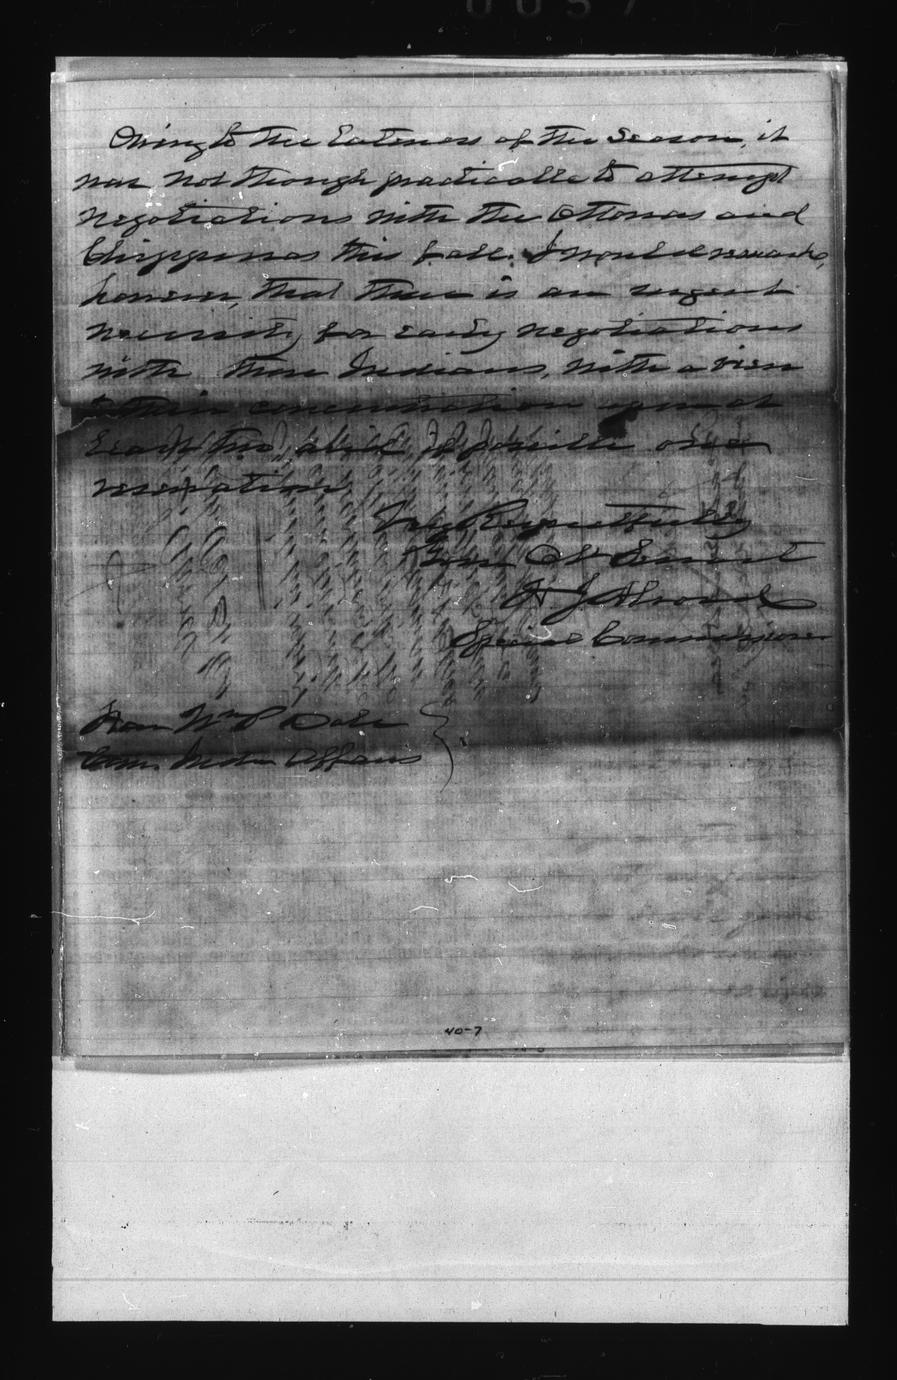 0057
Owing to the lateness of the season, it
was not though practicable to attempt
negotiations with the Ottowas and
Chippewas this fall. I would remark,
however, that there is an urgent
necessity for early negotiations
with these Indians, with a view
to their concentration upon at
least two, and, if possible one
reservation
Very Respectfully
Your Obt Servant
H J Alvord
Special Commissioner
Hon Wm P Dole
Com. Indn Affairs
40-7